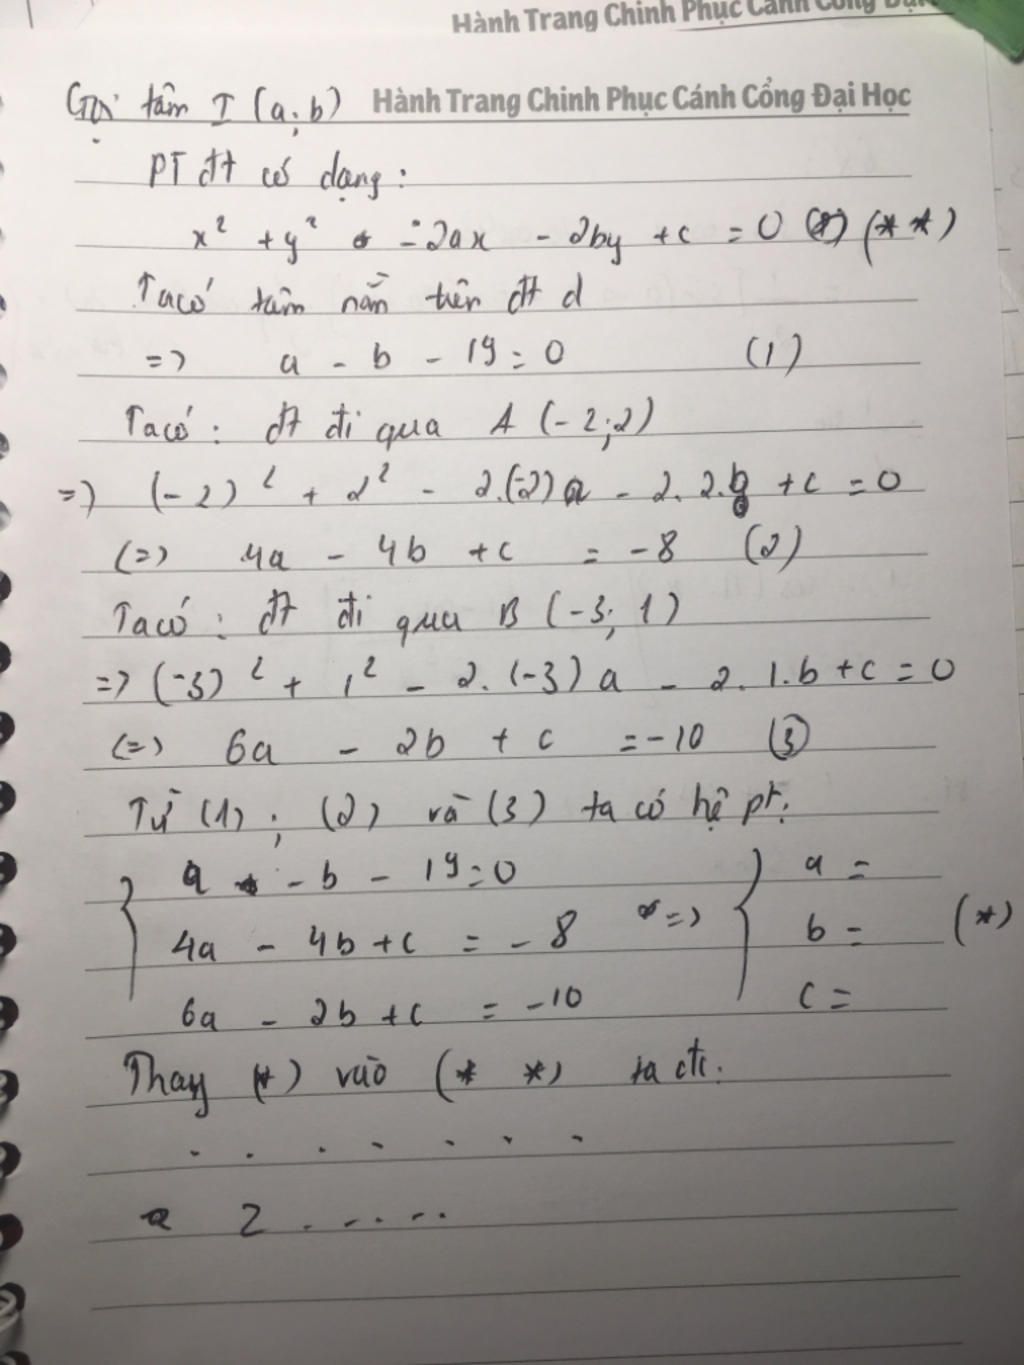 Hành Trang Chinh Phục Cánh Cổng Đại
Gọi tâm I (a; b) Hành Trang Chinh Phục Cánh Cổng Đại Học
PT đt có dạng:
x² + y² - 2ax - 2by + c = 0 (**)
Ta có tâm nằn trên đt d
=> a - b - 19 = 0 (1)
Ta có: đt đi qua A (-2; 2)
=> (-2)² + 2² - 2.(-2)a - 2.2.b + c = 0
(=) 4a - 4b + c = -8 (2)
Ta có: đt đi qua B (-3; 1)
=> (-3)² + 1² - 2.(-3)a - 2.1.b + c = 0
(=) 6a - 2b + c = -10 (3)
Từ (1); (2) và (3) ta có hệ pt:
a - b - 19 = 0
4a - 4b + c = -8
6a - 2b + c = -10
=>
a =
b = (*)
c =
Thay (*) vào (**) ta đc:
. . . . . . .
2 . . . . .